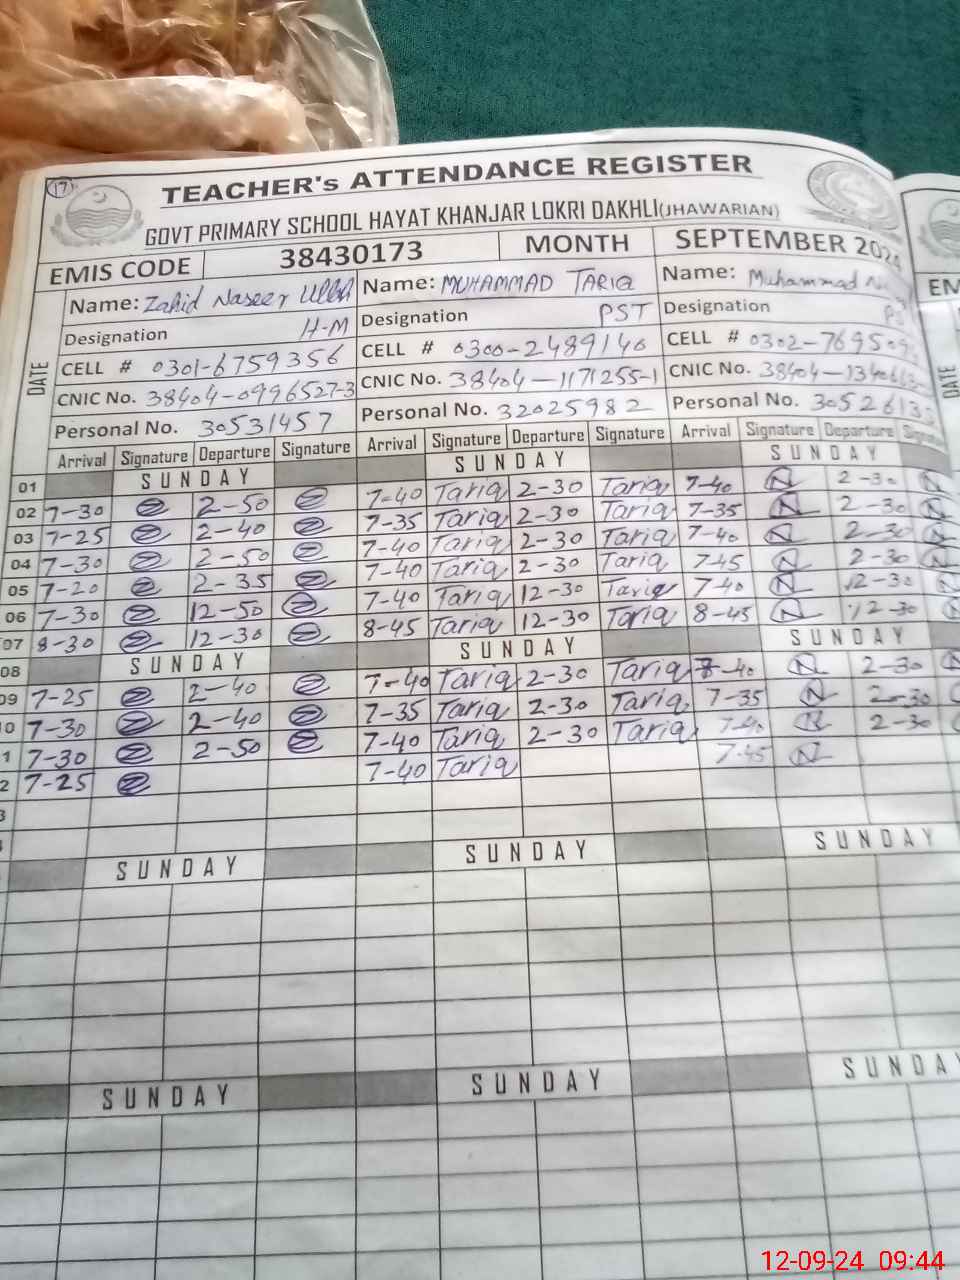 17
TEACHER's ATTENDANCE REGISTER
GOVT PRIMARY SCHOOL HAYAT KHANJAR LOKRI DAKHLI (JHAWARIAN)
EMIS CODE 38430173 MONTH SEPTEMBER 2024 EM
DATE Name: Zahid Naseer Ullah Name: MUHAMMAD TARIQ Name: Muhammad DATE
Designation H-M Designation PST Designation
CELL # 0301-6759356 CELL # 0300-2489140 CELL # 0302-7695
CNIC No. 38404-0996527-3 CNIC No. 38404-1171255-1 CNIC No. 38404-
Personal No. 30531457 Personal No. 32025982 Personal No. 3052613
Arrival Signature Departure Signature Arrival Signature Departure Signature Arrival Signature Departure
01 SUNDAY SUNDAY SUNDAY
02 7-30 2-50 7-40 Tariq 2-30 Tariq 7-40 N 2-30 N
03 7-25 2-40 7-35 Tariq 2-30 Tariq 7-35 N 2-30 N
04 7-30 2-50 7-40 Tariq 2-30 Tariq 7-40 N 2-30 N
05 7-20 2-35 7-40 Tariq 2-30 Tariq 7-45 N 2-30 N
06 7-30 12-50 7-40 Tariq 12-30 Tariq 7-40 N 12-30 N
07 8-30 12-30 8-45 Tariq 12-30 Tariq 8-45 N 12-30 N
08 SUNDAY SUNDAY SUNDAY
09 7-25 2-40 7-40 Tariq 2-30 Tariq 7-40 N 2-30 N
10 7-30 2-40 7-35 Tariq 2-30 Tariq 7-35 N 2-30 N
1 7-30 2-50 7-40 Tariq 2-30 Tariq 7-40 N 2-30
2 7-25 7-40 Tariq 7-45 N
3
SUNDAY SUNDAY SUNDAY
SUNDAY SUNDAY SUNDAY
12-09-24 09:44